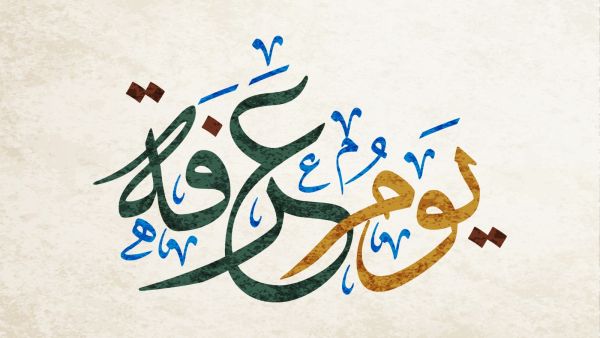 يَوْمُ عَرَفَة